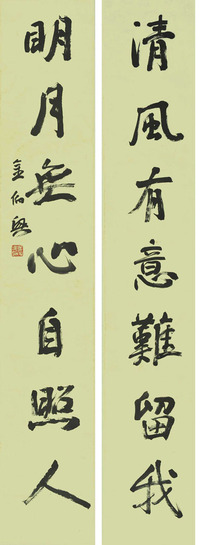 清風有意難留我
明月無心自照人
金伯興